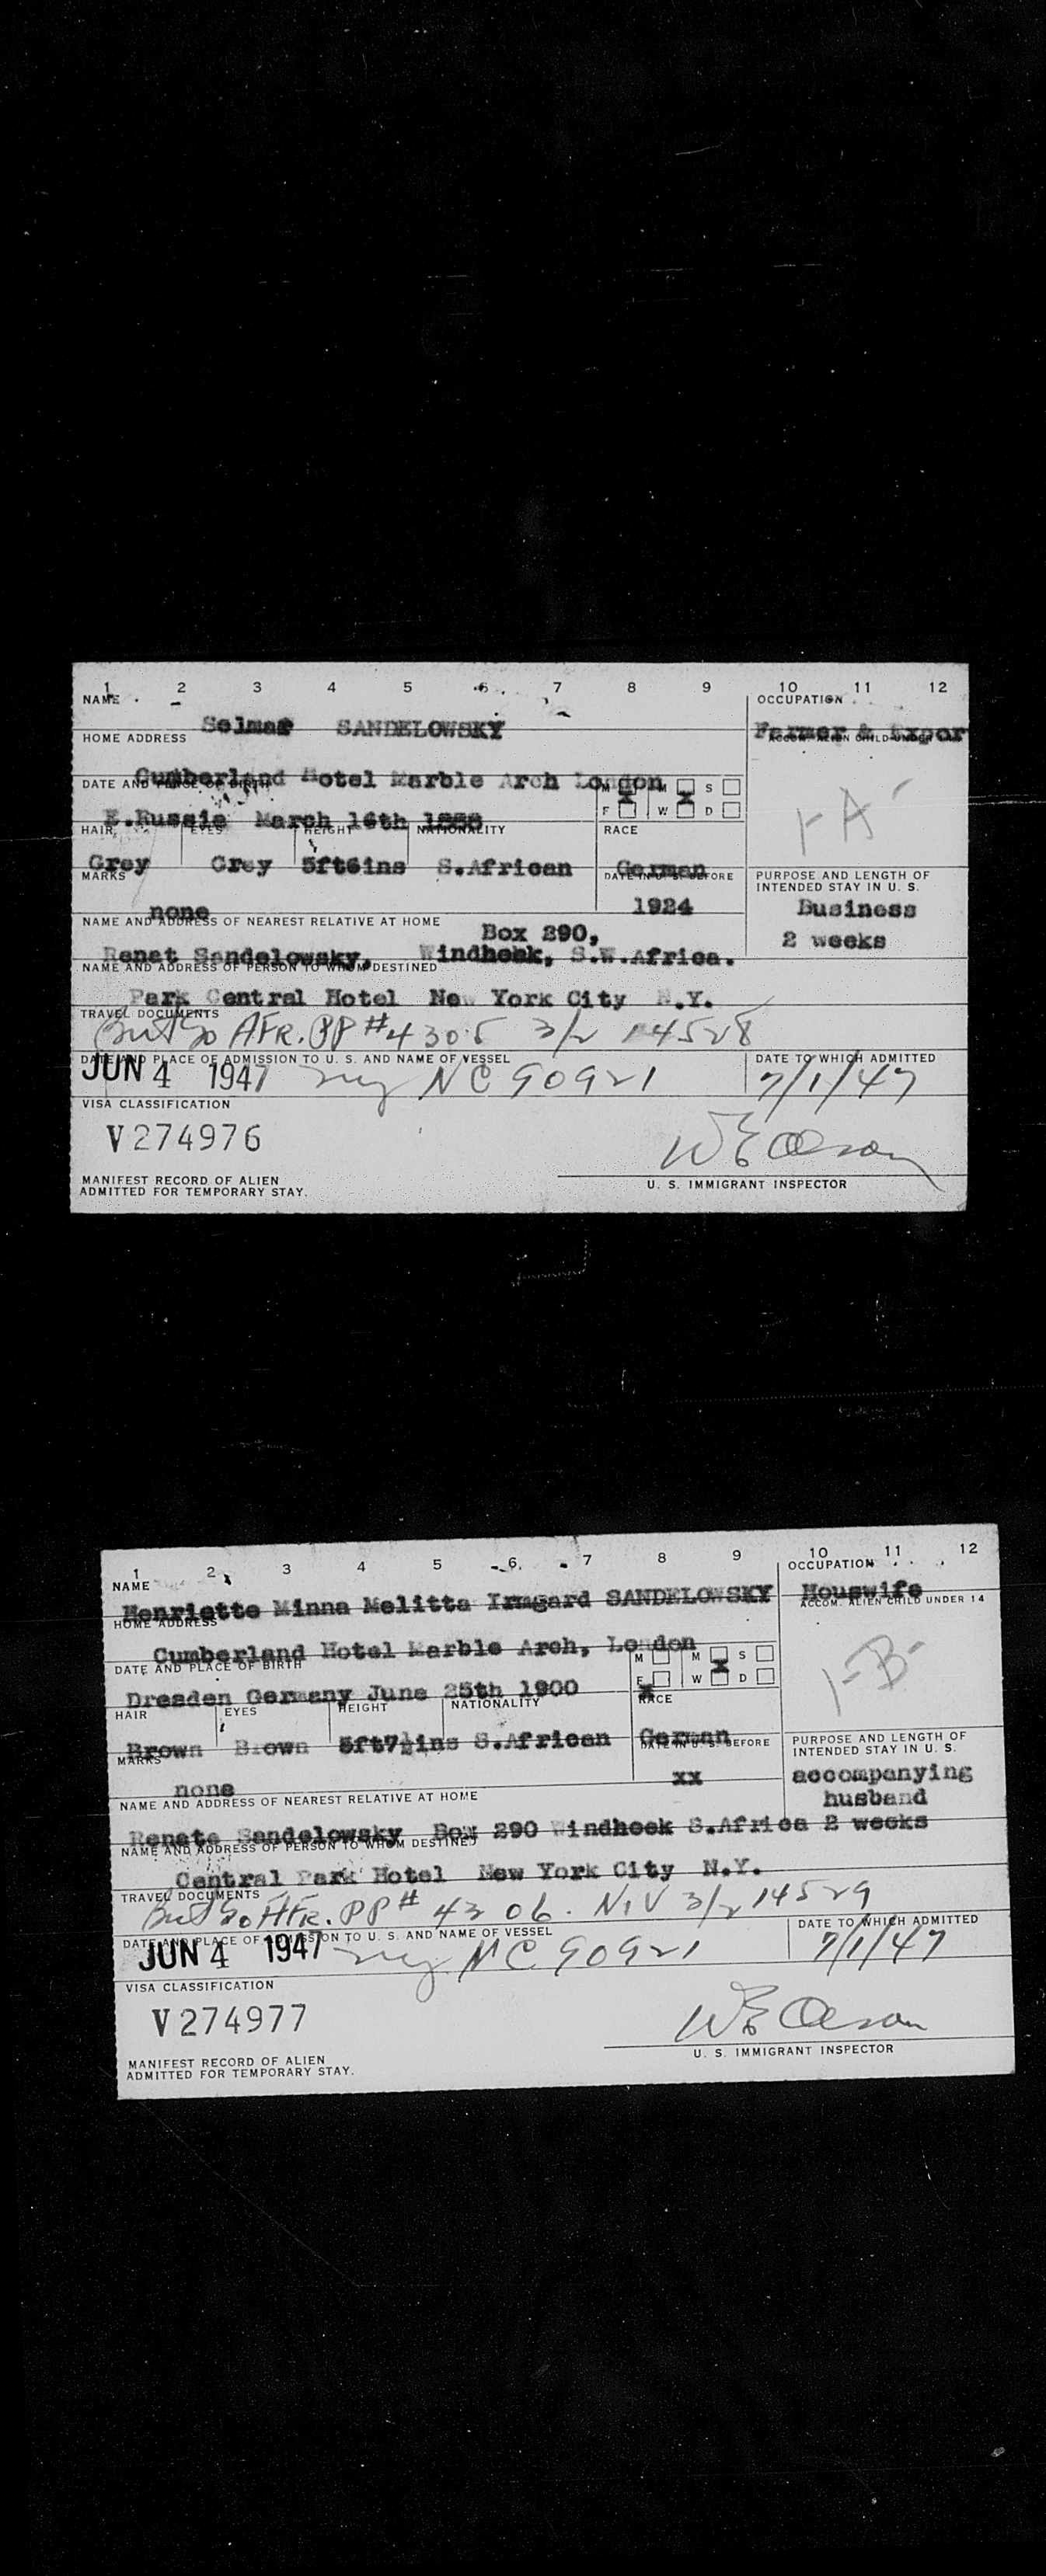 1 2 3 4 5 6 7 8 9 10 11 12
NAME OCCUPATION
Selmar SANDELOWSKY Farmer & Expor
HOME ADDRESS ACCOM. ALIEN CHILD UNDER
Cumberland Hotel Marble Arch London
DATE AND PLACE OF BIRTH M M S
F W D
E.Russia March 16th
HAIR EYES HEIGHT NATIONALITY RACE
Grey Grey 5ft6ins S.African German
MARKS DATE IN U. S. BEFORE PURPOSE AND LENGTH OF INTENDED STAY IN U. S.
none 1924 Business
NAME AND ADDRESS OF NEAREST RELATIVE AT HOME
Box 290, 2 weeks
Renat Sandelowsky, Windhoek, S.W.Africa.
NAME AND ADDRESS OF PERSON TO WHOM DESTINED
Park Central Hotel New York City N.Y.
TRAVEL DOCUMENTS
AFR. PP # 4305 3/2 14528
DATE AND PLACE OF ADMISSION TO U. S. AND NAME OF VESSEL DATE TO WHICH ADMITTED
JUN 4 1947 NC 90921 7/1/47
VISA CLASSIFICATION
V274976
MANIFEST RECORD OF ALIEN
ADMITTED FOR TEMPORARY STAY.
U. S. IMMIGRANT INSPECTOR
1 2 3 4 5 6 7 8 9 10 11 12
NAME OCCUPATION
Henriette Minna Melitta Irmgard SANDELOWSKY Houswife
HOME ADDRESS ACCOM. ALIEN CHILD UNDER 14
Cumberland Hotel Marble Arch, London
DATE AND PLACE OF BIRTH M M S
F W D
Dresden Germany June 25th 1900
HAIR EYES HEIGHT NATIONALITY RACE
1-B-
Brown Brown 5ft7½ins S.African German
MARKS DATE IN U. S. BEFORE PURPOSE AND LENGTH OF INTENDED STAY IN U. S.
none xx accompanying
husband
NAME AND ADDRESS OF NEAREST RELATIVE AT HOME
Renate Sandelowsky Box 290 Windhoek S.Africa 2 weeks
NAME AND ADDRESS OF PERSON TO WHOM DESTINED
Central Park Hotel New York City N.Y.
TRAVEL DOCUMENTS
AFR. PP # 4306. NIV 3/2 14529
DATE AND PLACE OF ADMISSION TO U. S. AND NAME OF VESSEL DATE TO WHICH ADMITTED
JUN 4 1947 NC 90921 7/1/47
VISA CLASSIFICATION
V274977
MANIFEST RECORD OF ALIEN
ADMITTED FOR TEMPORARY STAY.
U. S. IMMIGRANT INSPECTOR